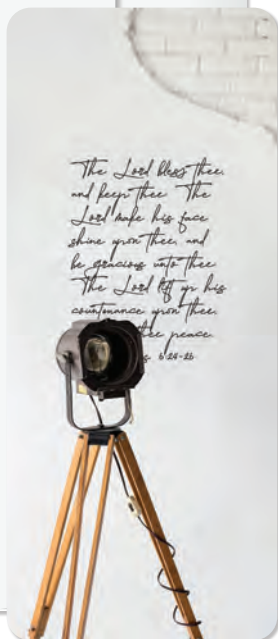 The Lord bless thee,
and keep thee The
Lord make his face
shine upon thee, and
be gracious unto thee
The Lord lift up his
countenance upon thee,
thee peace
6 24-26